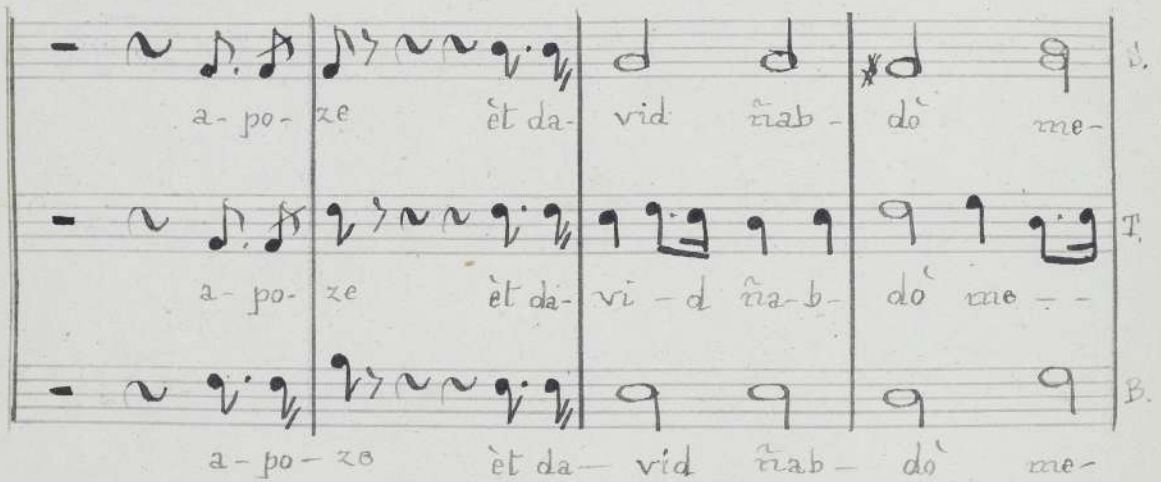 S.
a- po- ze èt da- vid ñab- dò me-
T.
a- po- ze èt da- vi- d ña- b- dò me - -
B.
a- po- ze èt da- vid ñab- dò me-